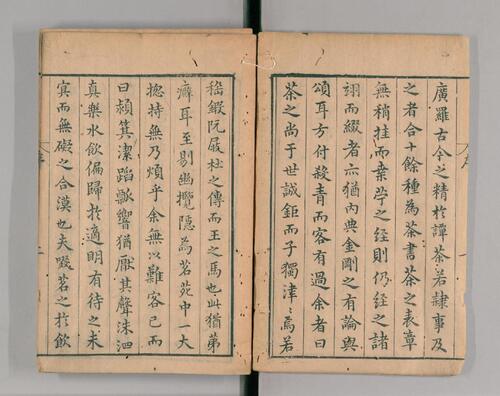 廣羅古今之精於譚茶若隸事及
之者合十餘種為茶書茶之表章
無稍挂而桑苧之經則仍經之諸
翊而綴者亦猶内典金剛之有論與
頌耳方付殺青而客有過余者曰
茶之尚于世誠鉅而子獨津〻焉若
嵇鍛阮屐杜之傳而王之馬也此猶第
癖耳至剔幽攬隱為茗苑中一大
揔持無乃煩乎余無以難客已而
曰潁箕潔蹈瓢響猶厭其聲洙泗
真樂水飲偏歸於適明有待之未
㝠而無礙之合漠也夫啜茗之於飲